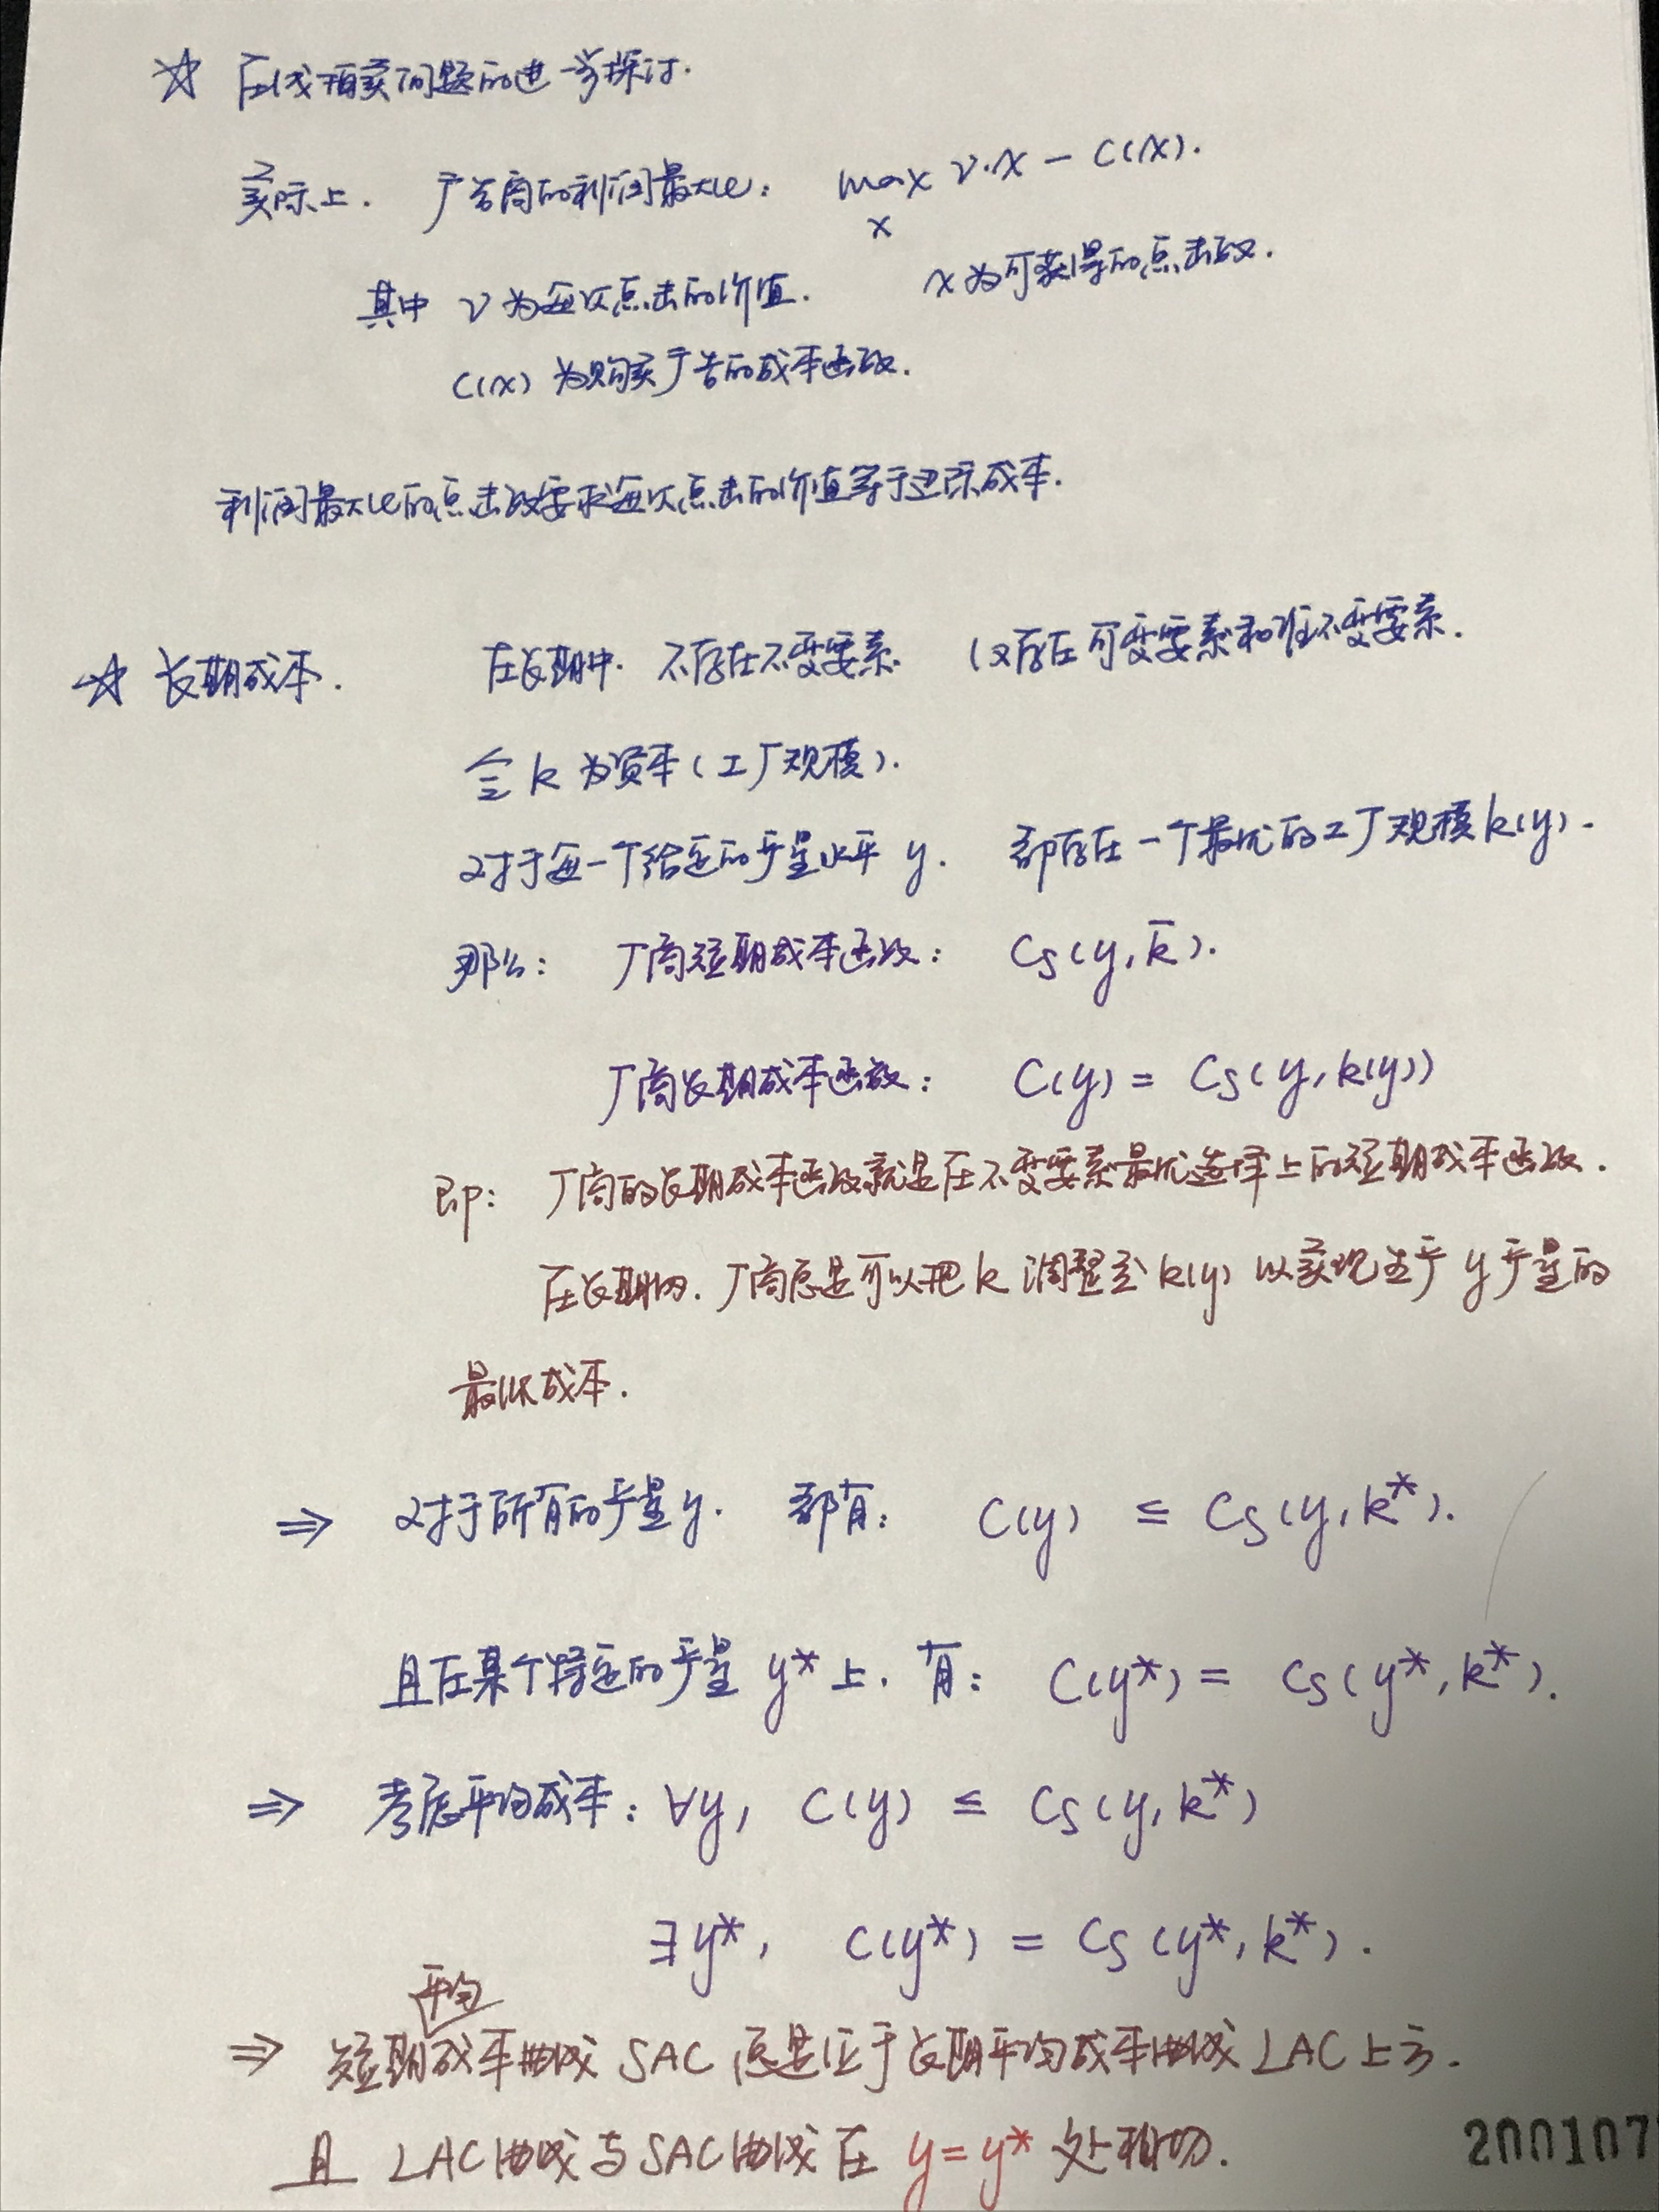 ☆ 在线拍卖问题的进一步探讨.
实际上. 广告商的利润最大化: max v·x - c(x).
x
其中 v为每次点击的价值. x为可获得的点击数.
c(x) 为购买广告的成本函数.
利润最大化的点击数要求每次点击的价值等于边际成本.
☆ 长期成本. 在长期中. 不存在不变要素. 仅存在可变要素和准不变要素.
令 k 为资本(工厂规模).
对于每一个给定的产量水平 y. 都存在一个最优的工厂规模 k(y).
那么: 厂商短期成本函数: Cs(y, k̄).
厂商长期成本函数: C(y) = Cs(y, k(y))
即: 厂商的长期成本函数就是在不变要素最优选择上的短期成本函数.
在长期内. 厂商总是可以把 k 调整至 k(y) 以实现生产 y 产量的
最低成本.
⇒ 对于所有的产量 y. 都有: C(y) ≤ Cs(y, k*).
且在某个特定的产量 y* 上. 有: C(y*) = Cs(y*, k*).
⇒ 考虑平均成本: ∀y, C(y) ≤ Cs(y, k*)
∃y*, C(y*) = Cs(y*, k*).
平均
⇒ 短期成本曲线 SAC 总是位于长期平均成本曲线 LAC 上方.
且 LAC曲线与SAC曲线在 y=y* 处相切.
200107